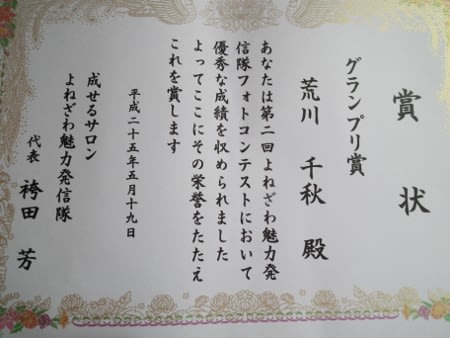 賞状
グランプリ賞
荒川 千秋 殿
あなたは第二回よねざわ魅力発
信隊フォトコンテストにおいて
優秀な成績を収められました
よってここにその栄誉をたたえ
これを賞します
平成二十五年五月十九日
成せるサロン
よねざわ魅力発信隊
代表 袴田 芳